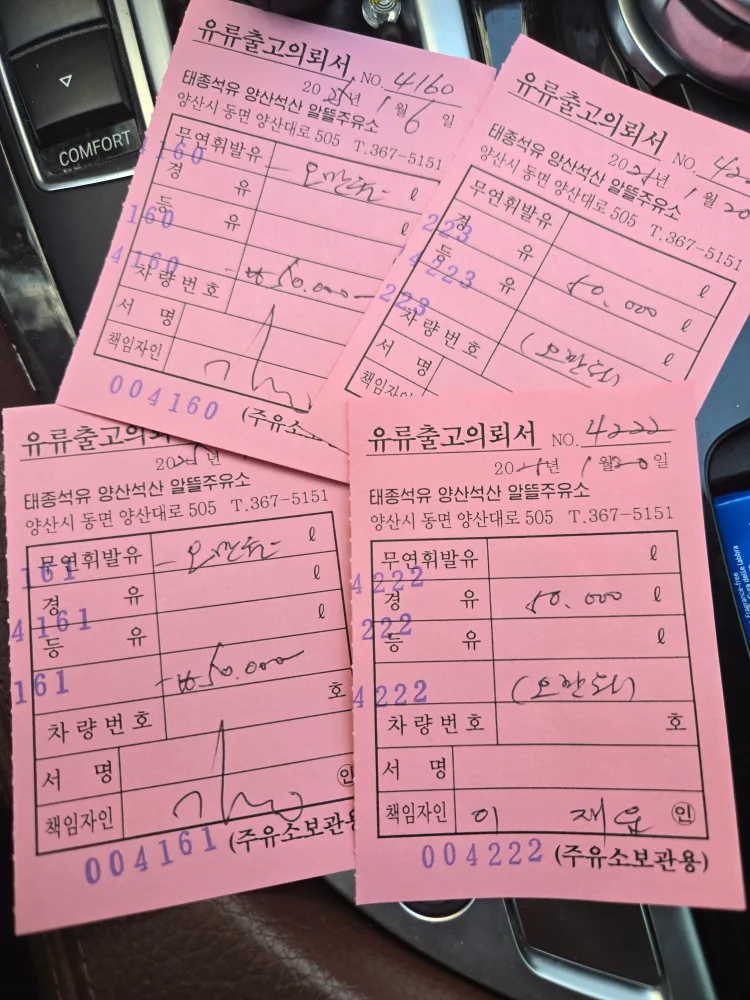 COMFORT
유류출고의뢰서
NO. 4160
20 년 1월 6일
태종석유 양산석산 알뜰주유소
양산시 동면 양산대로 505 T.367-5151
무연휘발유 오만원 ℓ
경 유
등 유
₩50.000
차량번호
서 명
책임자인
4160
160
4160
004160
(주유소
유류출고의뢰서
NO. 422
20 년 1월 20
태종석유 양산석산 알뜰주유소
양산시 동면 양산대로 505 T.367-5151
무연휘발유 ℓ
경 유 50.000 ℓ
등 유 ℓ
(오만원)
차량번호
서 명
책임자인
223
4223
223
유류출고의뢰서
20 년
태종석유 양산석산 알뜰주유소
양산시 동면 양산대로 505 T.367-5151
무연휘발유 오만원 ℓ
경 유 ℓ
등 유 ℓ
₩50.000
차량번호 호
서 명
책임자인 인
161
4161
161
004161
(주유소보관용
유류출고의뢰서
NO. 4222
20 년 1월 20일
태종석유 양산석산 알뜰주유소
양산시 동면 양산대로 505 T.367-5151
무연휘발유 ℓ
경 유 50.000 ℓ
등 유 ℓ
(오만원)
차량번호 호
서 명
책임자인 이 재 인
4222
222
4222
004222
(주유소보관용)
Fragrance-free